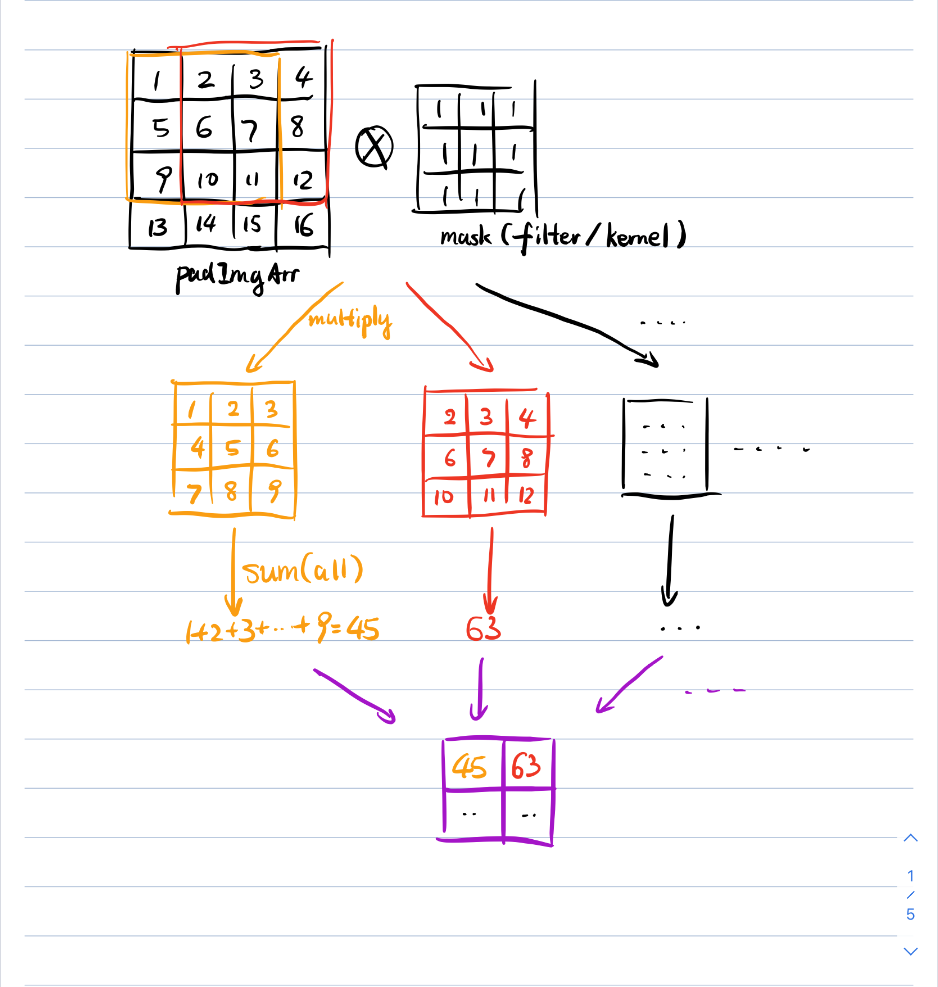 1 2 3 4
5 6 7 8
9 10 11 12
13 14 15 16
padImgArr
1 1 1
1 1 1
1 1 1
mask (filter/kernel)
multiply
....
1 2 3
4 5 6
7 8 9
2 3 4
6 7 8
10 11 12
...
...
...
....
sum(all)
1+2+3+..+9=45
63
...
45 63
.. ..
1
/
5